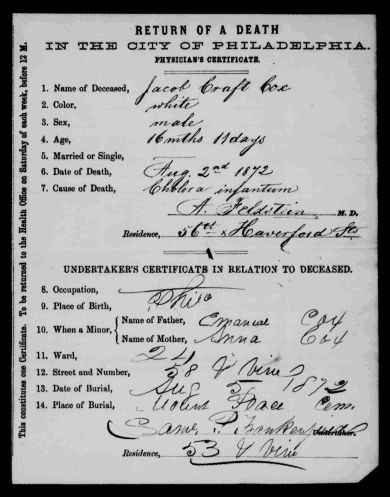 RETURN OF A DEATH
IN THE CITY OF PHILADELPHIA.
PHYSICIAN'S CERTIFICATE.
1. Name of Deceased, Jacob Craft Cox
2. Color, white
3. Sex, male
4. Age, 16 mths 11 days
5. Married or Single,
6. Date of Death, Aug. 2nd 1872
7. Cause of Death, Cholera infantum
A. Feldstein M. D.
Residence, 56th & Haverford Sts
UNDERTAKER'S CERTIFICATE IN RELATION TO DECEASED.
8. Occupation,
9. Place of Birth, Phila
10. When a Minor, Name of Father, Emanuel Cox
Name of Mother, Anna Cox
11. Ward, 24
12. Street and Number, 58 & Vine
13. Date of Burial, Aug 5 1872
14. Place of Burial, Mount Cem.
Undertaker.
Residence, 53 & Vine
This constitutes one Certificate. To be returned to the Health Office on Saturday of each week, before 12 M.